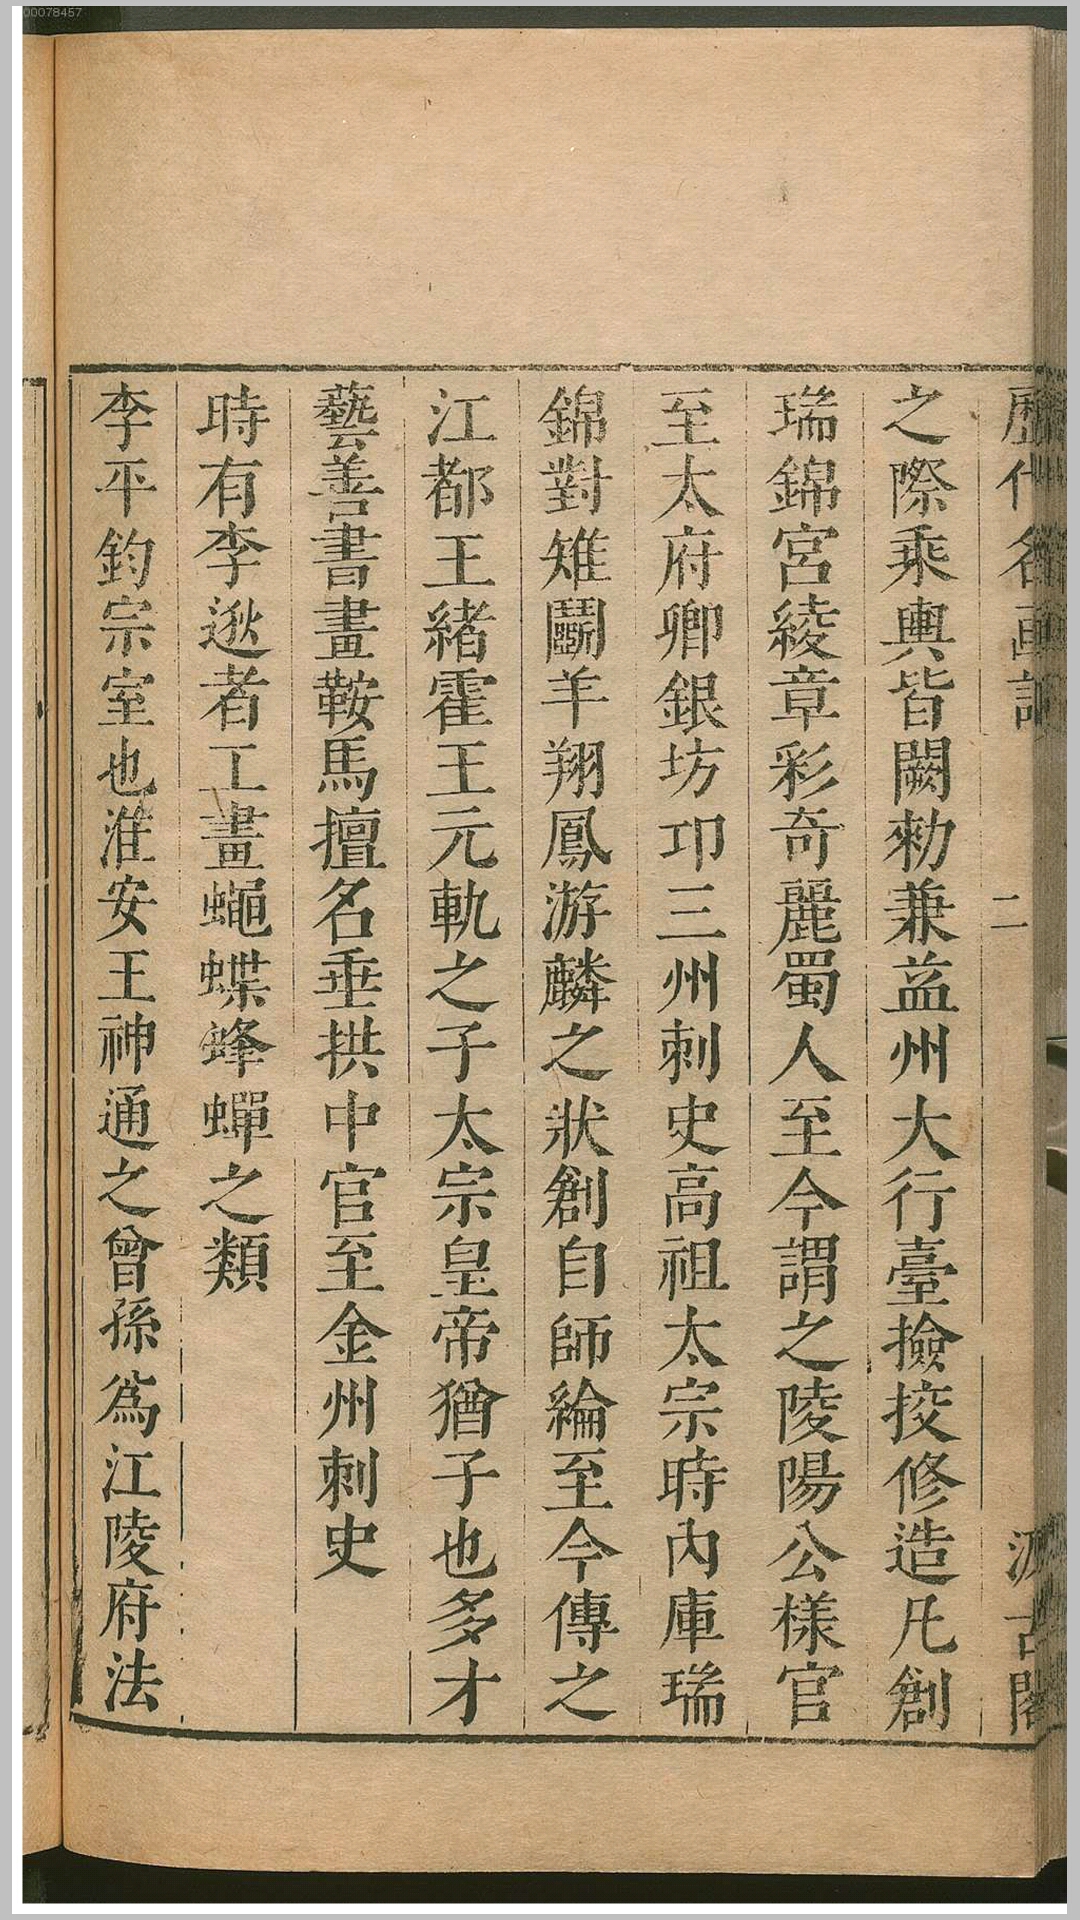 00078457
歷代名畫記 二 汲古閣
之際乘輿皆闕勑兼益州大行臺撿挍修造凡創
瑞錦宮綾章彩奇麗蜀人至今謂之陵陽公樣官
至太府卿銀坊卭三州刺史高祖太宗時內庫瑞
錦對雉鬭羊翔鳳游麟之狀創自師綸至今傳之
江都王緒霍王元軌之子太宗皇帝猶子也多才
藝善書畫鞍馬擅名垂拱中官至金州刺史
時有李逖者工畫蠅蝶蜂蟬之類
李平鈞宗室也淮安王神通之曾孫爲江陵府法